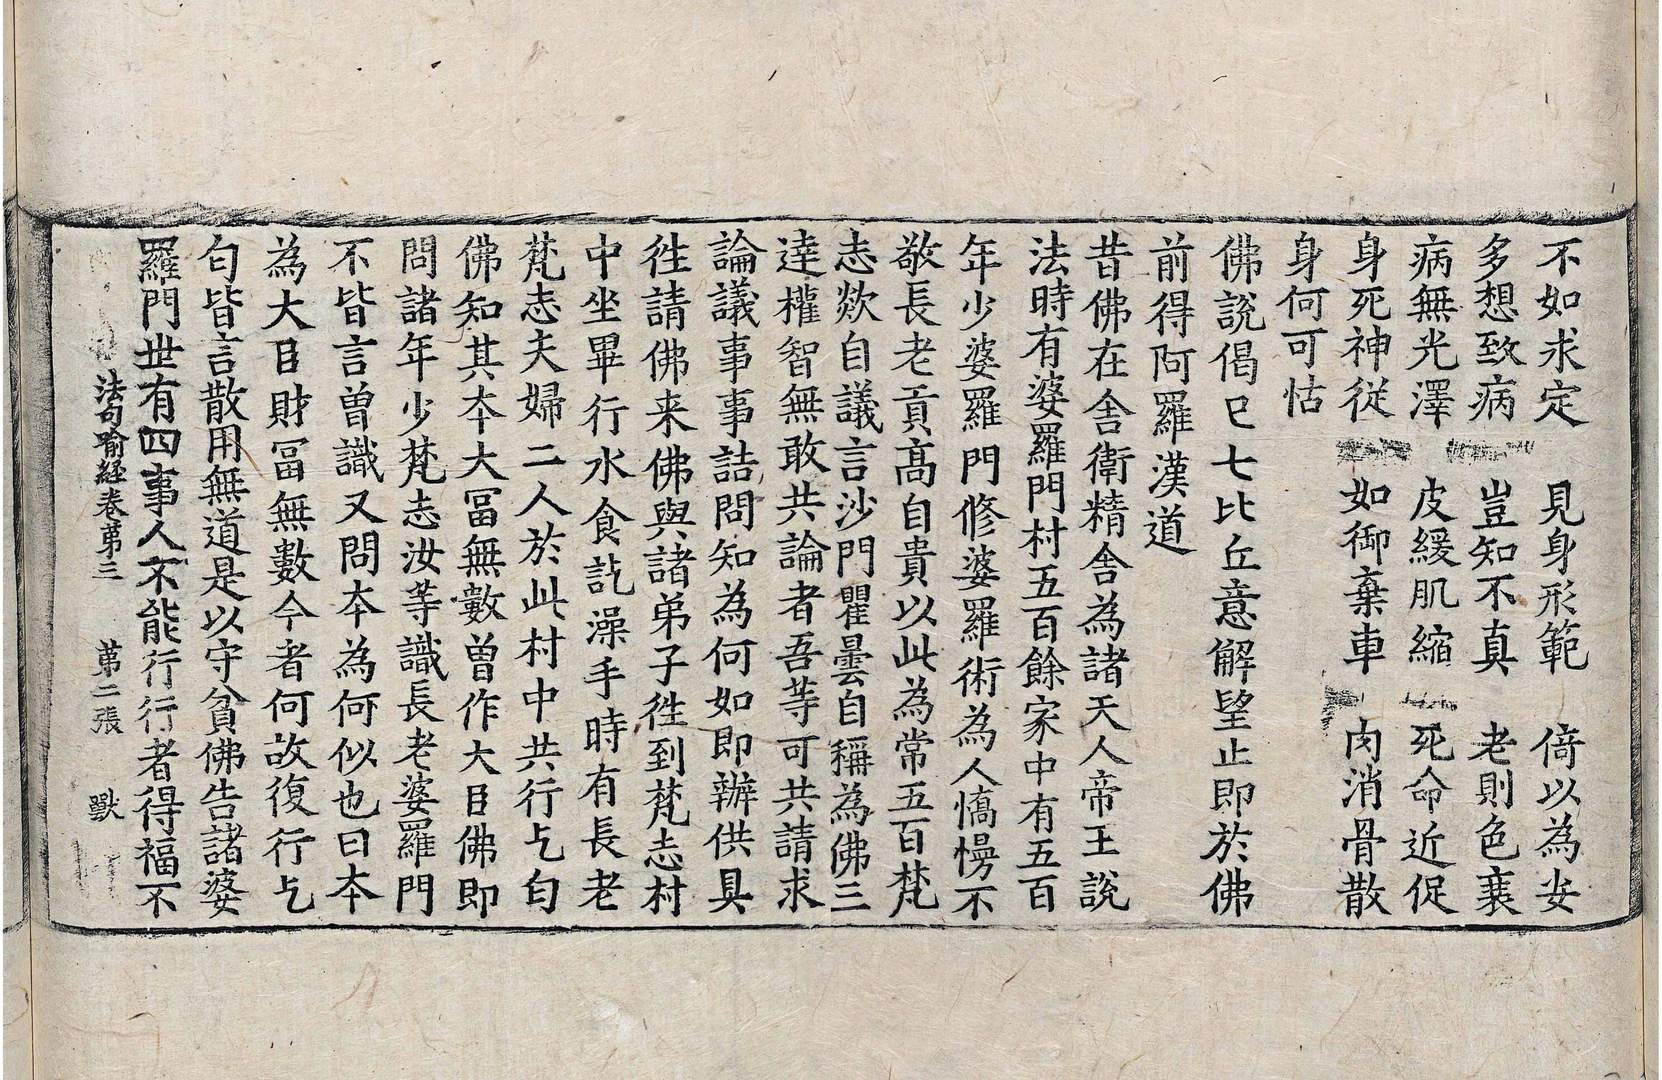 不如求定　見身形範　倚以為安
多想致病　豈知不真　老則色衰
病無光澤　皮緩肌縮　死命近促
身死神從　如御棄車　肉消骨散
身何可怙
佛說偈已七比丘意解望止即於佛
前得阿羅漢道
昔佛在舍衛精舍為諸天人帝王說
法時有婆羅門村五百餘家中有五百
年少婆羅門脩婆羅術為人憍慢不
敬長老貢高自貴以此為常五百梵
志欻自議言沙門瞿曇自稱為佛三
達權智無敢共論者吾等可共請求
論議事事詰問知為何如即辦供具
徃請佛来佛與諸弟子徃到梵志村
中坐畢行水食訖澡手時有長老
梵志夫婦二人於此村中共行乞匄
佛知其夲大冨無數曾作大臣佛即
問諸年少梵志汝等識長老婆羅門
不皆言曽識又問夲為何似也曰夲
為大臣財冨無數今者何故復行乞
匄皆言散用無道是以守貧佛告諸婆
羅門世有四事人不能行行者得福不
法句喻經卷第三　第二張　獸